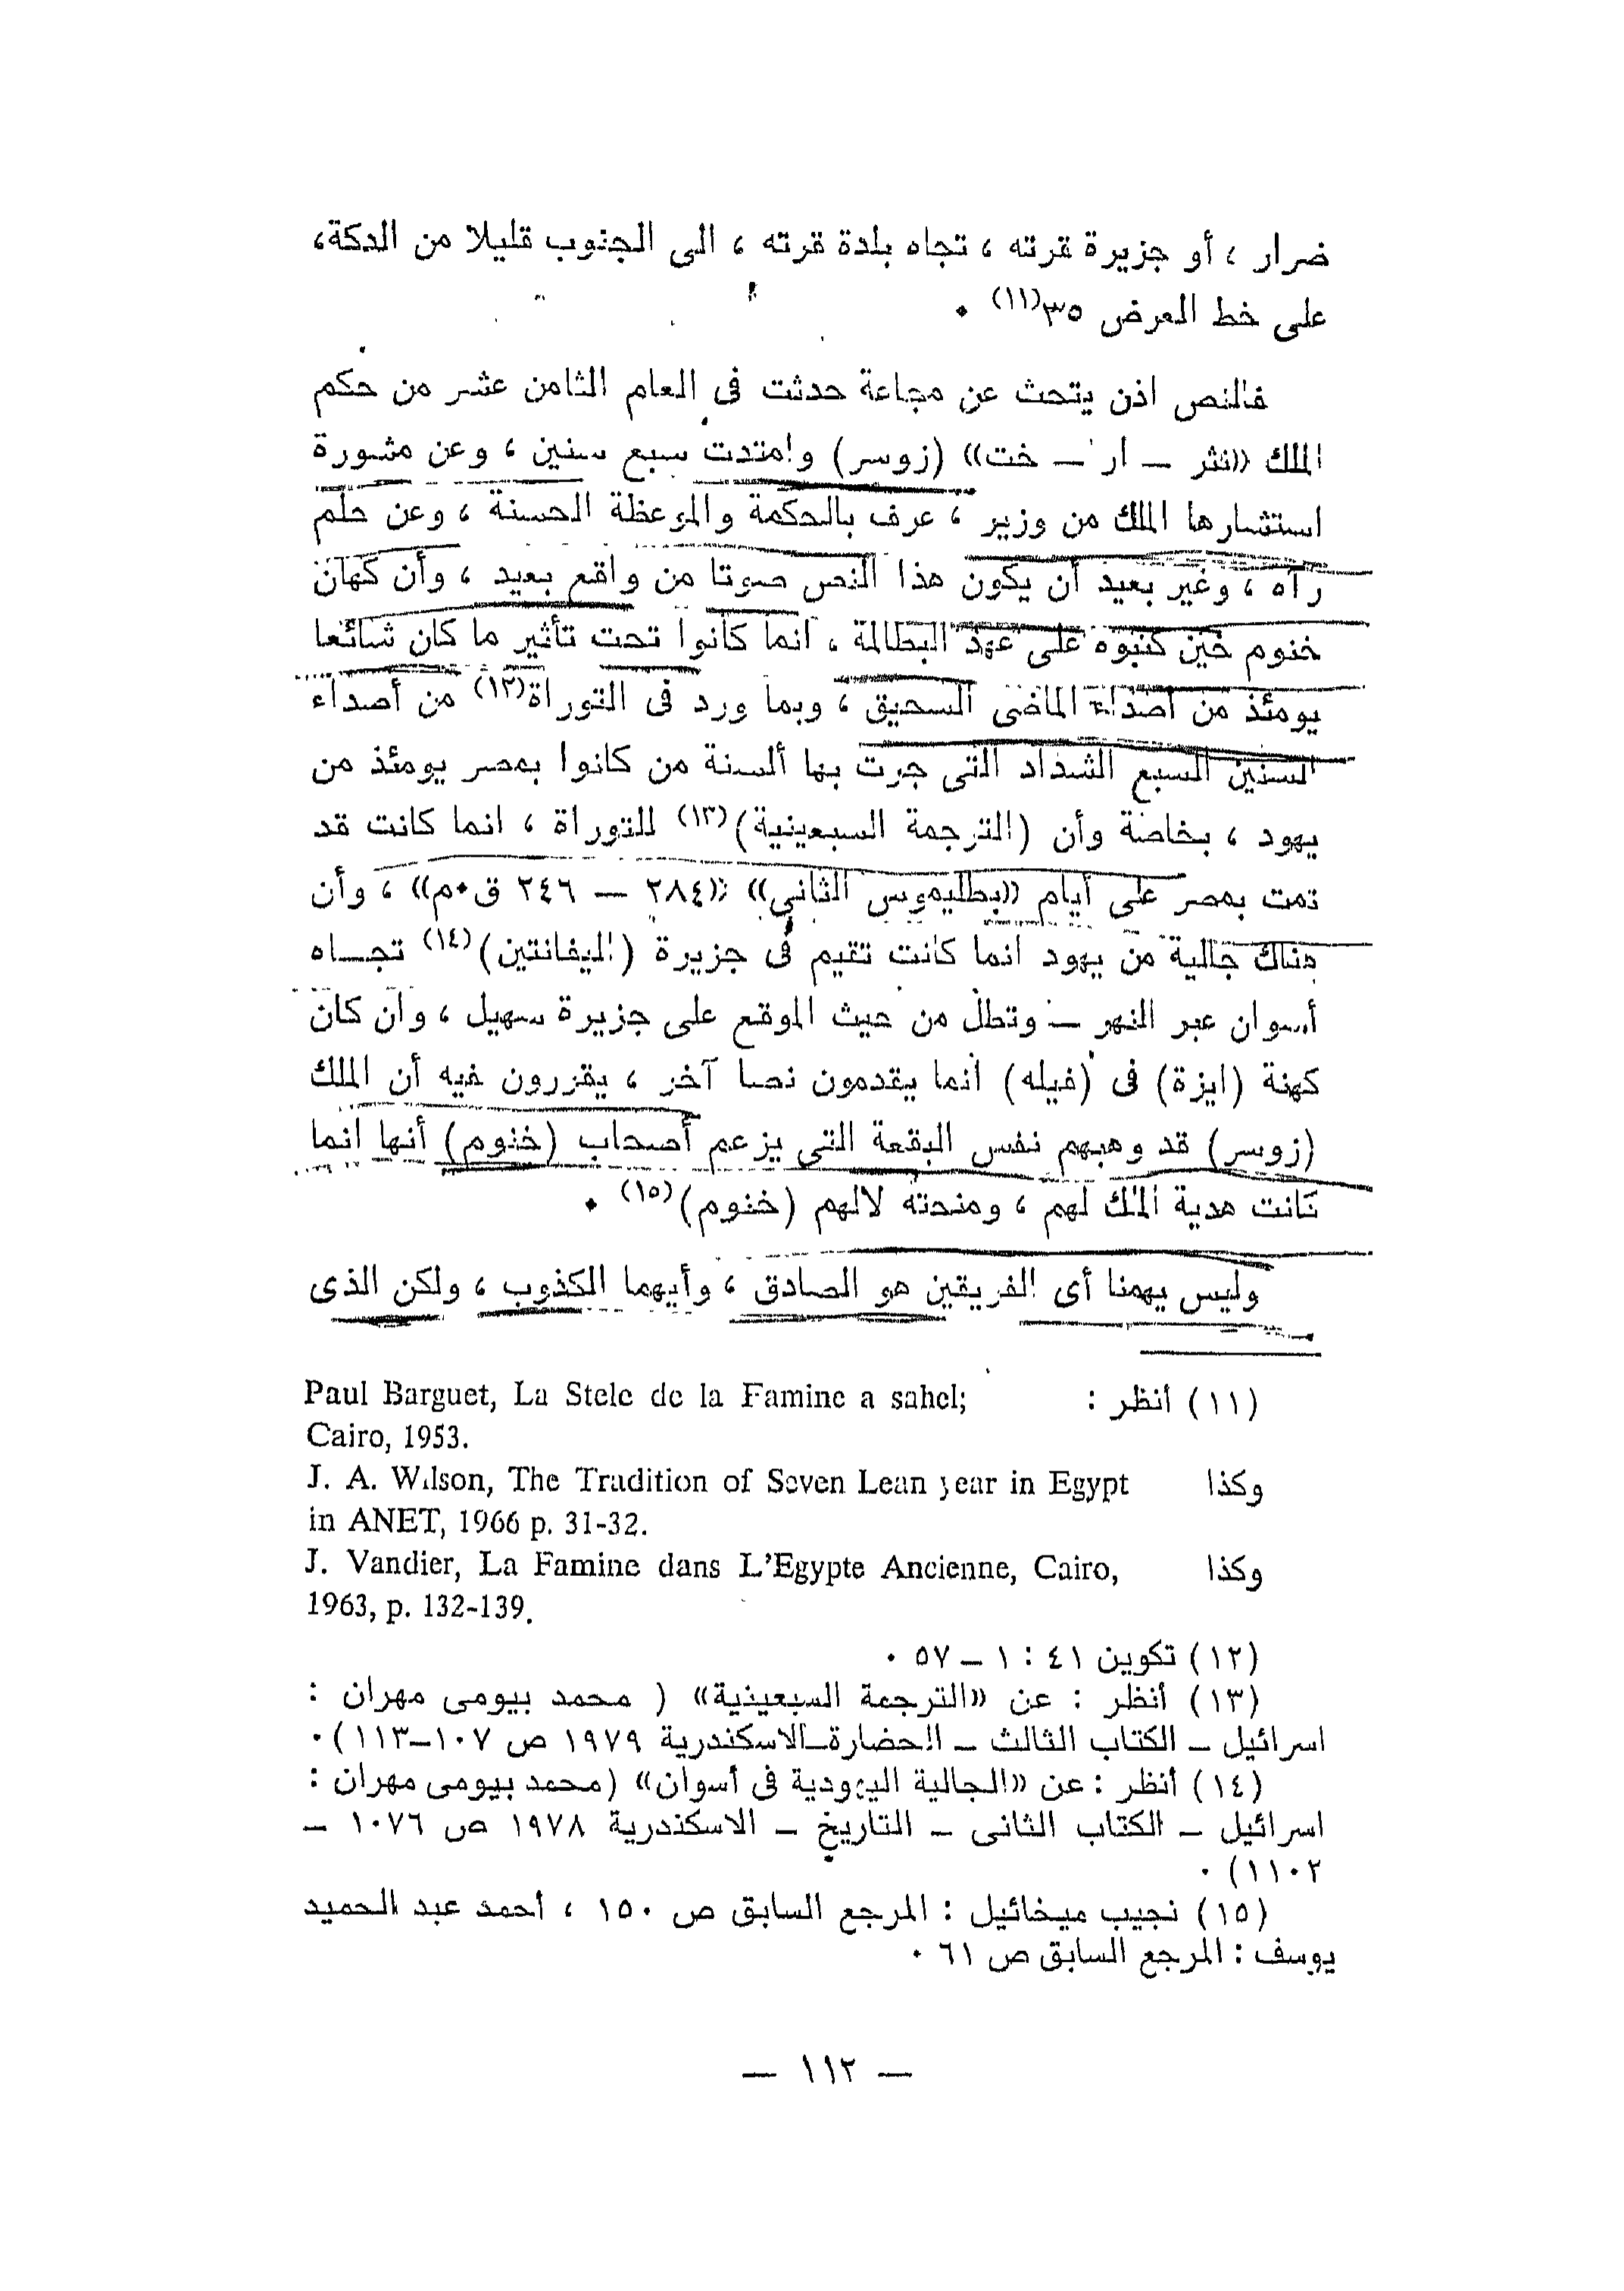 ضرار ، أو جزيرة قرته ، تجاه بلدة قرته ، الى الجنوب قليلا من الدكة،
على خط العرض ٣٥(١١) ٠
فالنص اذن يتحث عن مجاعة حدثت فى العام الثامن عشر من حكم
الملك «نثر — ار — خت» (زوسر) وامتدت سبع سنين ، وعن مشورة
استشارها الملك من وزير ، عرف بالحكمة والموعظة الحسنة ، وعن حلم
رآه ، وغير بعيد أن يكون هذا النص صوتا من واقع بعيد ، وأن كهان
خنوم حين كتبوه على عهد البطالمة ، انما كانوا تحت تأثير ما كان شائعا
يومئذ من أصداء الماضى السحيق ، وبما ورد فى التوراة(١٢) من أصداء
السنين السبع الشداد التى جرت بها ألسنة من كانوا بمصر يومئذ من
يهود ، بخاصة وأن (الترجمة السبعينية)(١٣) للتوراة ، انما كانت قد
تمت بمصر على أيام «بطليموس الثانى» «٢٨٤ — ٢٤٦ ق٠م» ، وأن
هناك جالية من يهود انما كانت تقيم فى جزيرة (اليفانتين)(١٤) تجاه
أسوان عبر النهر — وتطل من حيث الموقع على جزيرة سهيل ، وان كان
كهنة (ايزة) فى (فيله) انما يقدمون نصا آخر ، يقررون فيه أن الملك
(زوسر) قد وهبهم نفس البقعة التى يزعم أصحاب (خنوم) أنها انما
كانت هدية الملك لهم ، ومنحته لالهم (خنوم)(١٥) ٠
وليس يهمنا أى الفريقين هو الصادق ، وأيهما الكذوب ، ولكن الذى
(١١) أنظر : Paul Barguet, La Stele de la Famine a sahel;
Cairo, 1953.
وكذا J. A. Wilson, The Tradition of Seven Lean year in Egypt
in ANET, 1966 p. 31-32.
وكذا J. Vandier, La Famine dans L'Egypte Ancienne, Cairo,
1963, p. 132-139.
(١٢) تكوين ٤١ : ١ — ٥٧ ٠
(١٣) أنظر : عن «الترجمة السبعينية» ( محمد بيومى مهران :
اسرائيل — الكتاب الثالث — الحضارة—الاسكندرية ١٩٧٩ ص ١٠٧—١١٣) ٠
(١٤) أنظر : عن «الجالية اليهودية فى أسوان» (محمد بيومى مهران :
اسرائيل — الكتاب الثانى — التاريخ — الاسكندرية ١٩٧٨ ص ١٠٧٦ —
١١٠٢) ٠
(١٥) نجيب ميخائيل : المرجع السابق ص ١٥٠ ، أحمد عبد الحميد
يوسف : المرجع السابق ص ٦١ ٠
— ١١٢ —